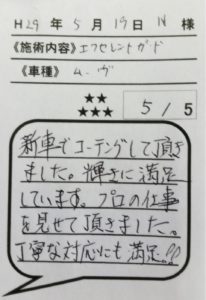 H29 年 5 月 19 日 N 様
《施術内容》エクセレントガード
《車種》 ムーヴ
★★
★★★ 5 / 5
新車でコーテングして頂き
ました。輝きに満足
しています。プロの仕事
を見せて頂きました。
丁寧な対応にも満足!!